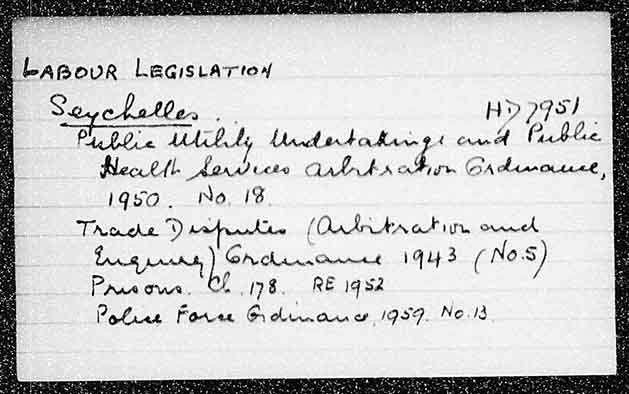 LABOUR LEGISLATION
Seychelles. HD 7951
Public Utility Undertakings and Public
Health Services Arbitration Ordinance,
1950. No. 18.
Trade Disputes (Arbitration and
Enquiry) Ordinance 1943 (No.5)
Prisons. Ch. 178. RE 1952
Police Force Ordinance, 1959. No. 13.